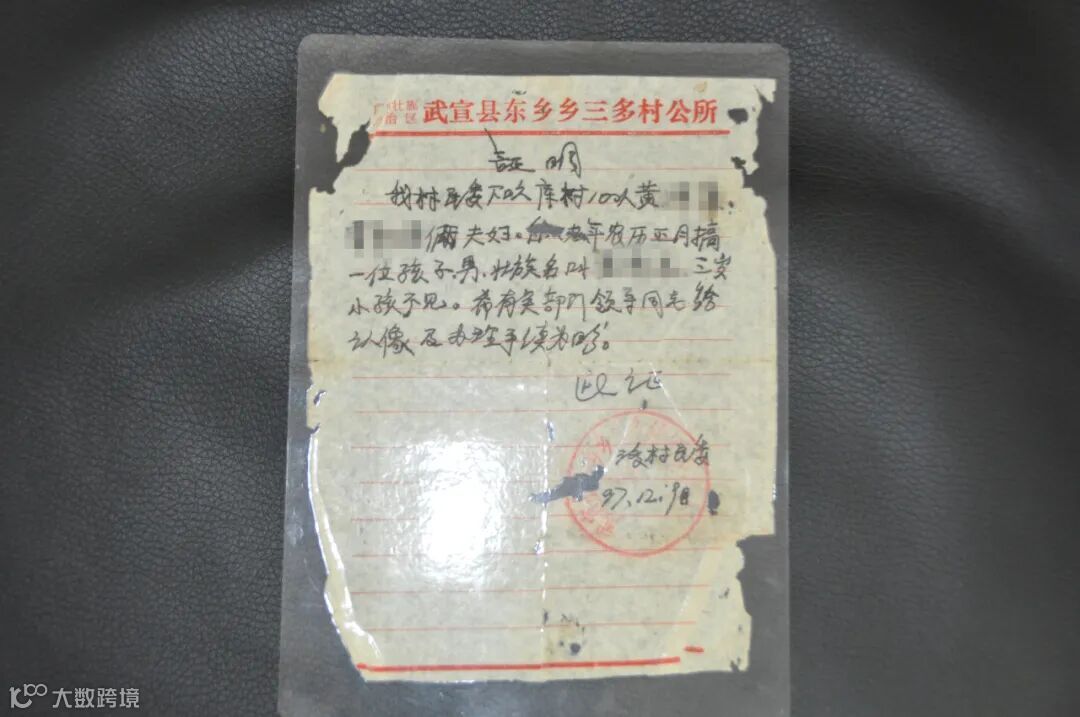 壮族
治区 武宣县东乡乡三多村公所
证明
我村民委 库村10队黄
俩夫妇。 年农历正月搞
一位孩子.男.壮族名叫 三岁
小孩不见。希有关部门领导同志给
认像及办理手续为盼。
此证
三多村民委
97.12.19日
大数跨境